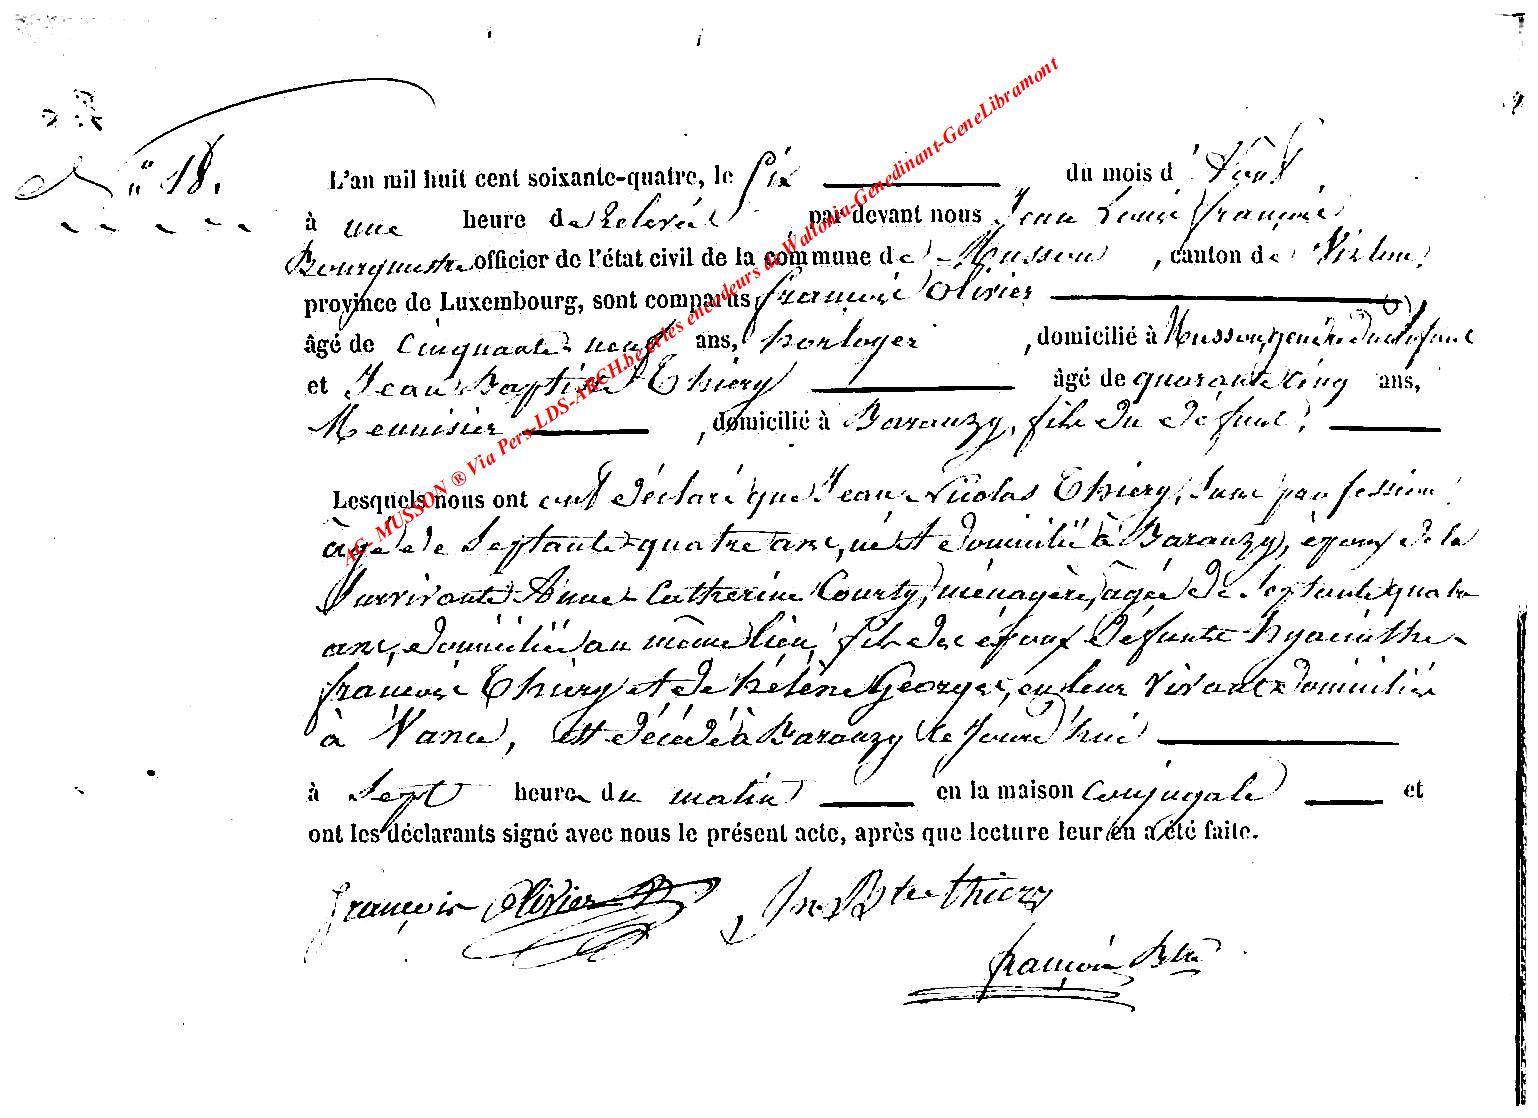 N° 18.
L'an mil huit cent soixante-quatre, le Six du mois d' Août
à une heure de Relevée, par devant nous Jean Louis françois
Bourgmestre officier de l'état civil de la commune de Musson, canton de Virton,
province de Luxembourg, sont comparus françois Olivier
âgé de Cinquante neuf ans, horloger, domicilié à Musson, gendre du défunt
et Jean Baptiste Thiery âgé de quarante cinq ans,
Meunisier, domicilié à Baranzy, fils du défunt,
Lesquels nous ont ont déclaré que Jean Nicolas Thiery, sans profession,
âgé de Septante quatre ans, né et domicilié à Baranzy, époux de la
Survivante Anne Catherine Courty, ménagère, âgée de Septante quatre
ans, domiciliée au même lieu, fils des époux défunts hyacinthe
françois Thiery et de hélène Georges, en leur vivant domiciliés
à Vance, est décédé à Baranzy ce Jourd'hui
à Sept heures du matin en la maison Conjugale et
ont les déclarants signé avec nous le présent acte, après que lecture leur en a été faite.
françois Olivier Jn Bte thiery
françois
AG- MUSSON ® Via Pers-LDS-ARCH.be et les encodeurs de Wallonia-Genedinant-GeneLibramont